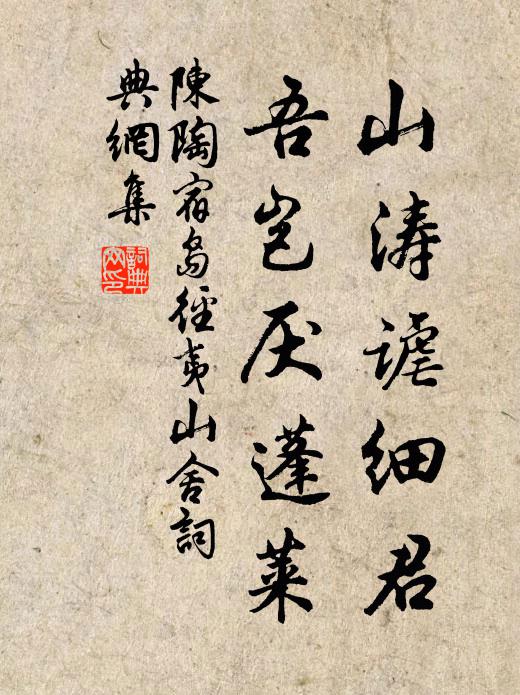 山涛谑细君
吾岂厌蓬莱
陳陶宿島徑夷山舍詞
典網集
詞典